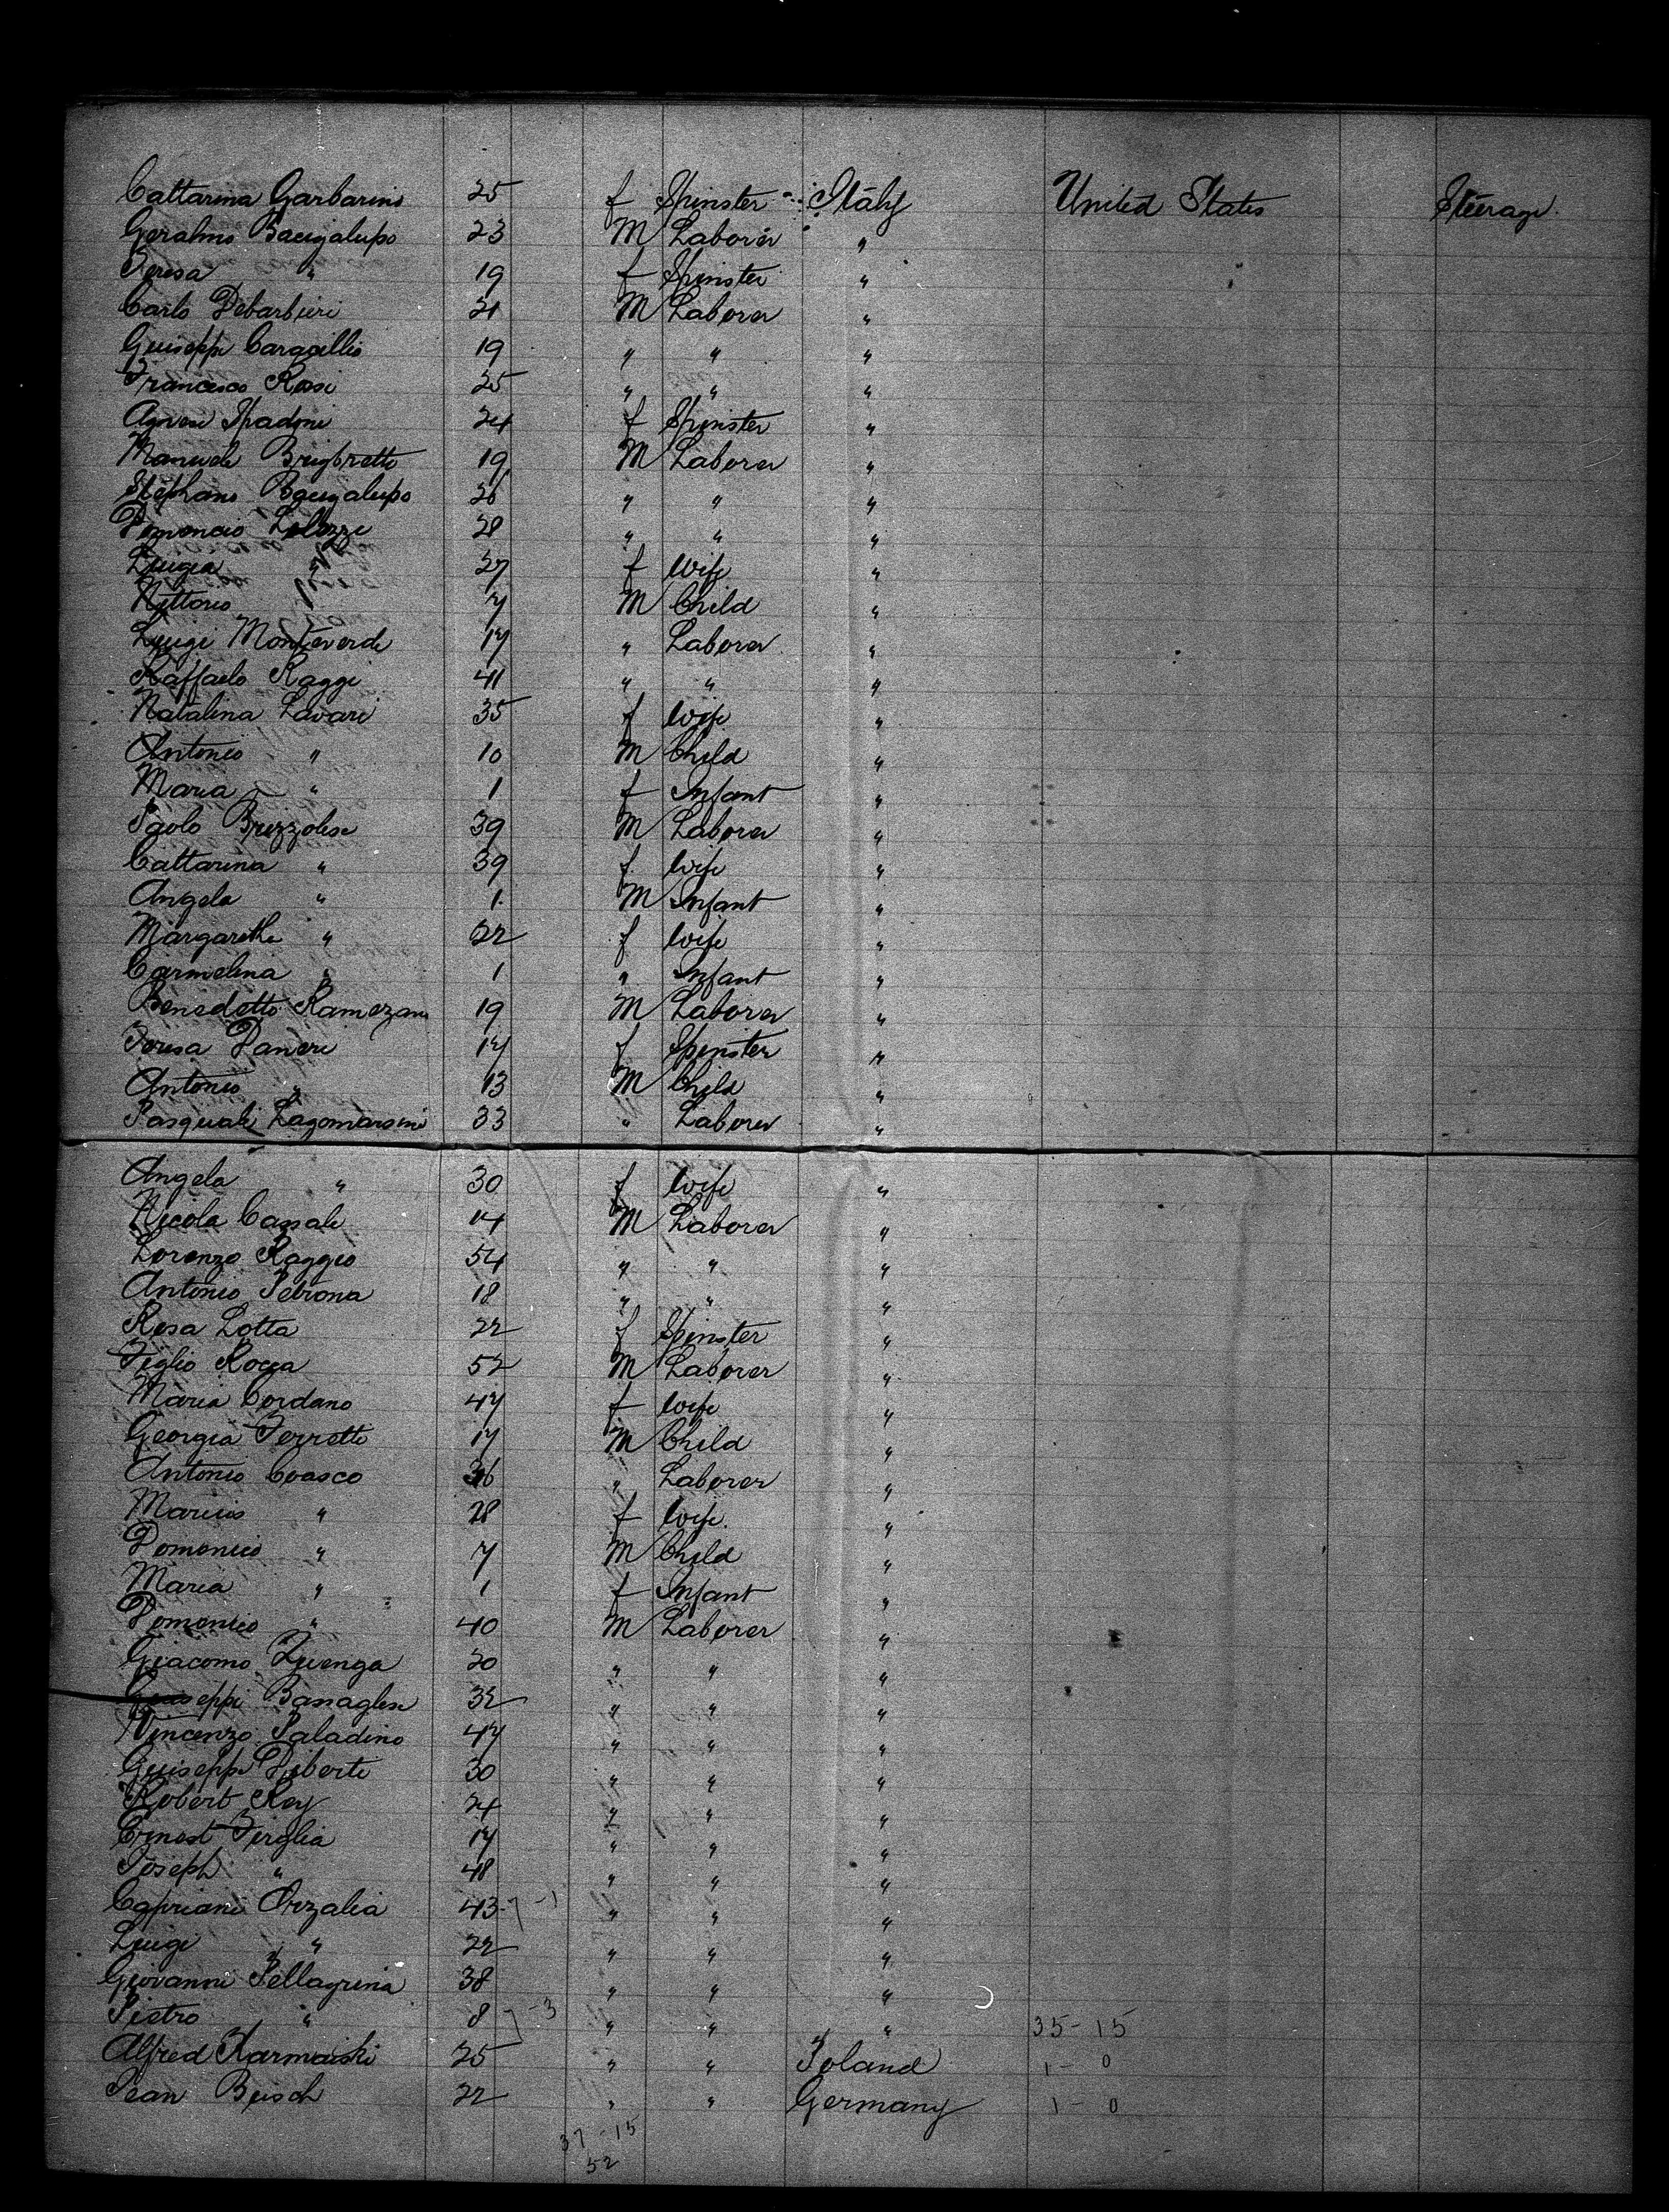 Cattarina Garbarino 25 f Spinster Italy United States Steerage.
Geralmo Bacigalupo 23 M Laborer "
Teresa " 19 f Spinster "
Carlo Debarbieri 21 M Laborer "
Guiseppe 19 " " "
Francesco Rossi 25 " " "
Agnese Spadoni 24 f Spinster "
Manuele 19 M Laborer "
Stephano Bacigalupo 26 " " "
28 " " "
Luigia " 27 f Wife "
Vittorio 7 M Child "
Luigi Monteverde 17 " Laborer "
Raffaelo Raggi 41 " " "
Natalina Lavari 35 f Wife "
Antonio " 10 M Child "
Maria " 1 f Infant "
Paolo Brizzolese 39 M Laborer "
Cattarina " 39 f Wife "
Angelo " 1 M Infant "
Margarethe " 22 f Wife "
Carmelina " 1 " Infant "
Benedetto Ramezani 19 M Laborer "
Teresa Daneri 17 f Spinster "
Antonio " 13 M Child "
Pasquale Lagomarsini 33 " Laborer "
Angela " 30 f Wife "
Nicola Cassale 14 M Laborer "
Lorenzo Raggio 54 " " "
Antonio Petrona 18 " " "
Rosa Lotta 22 f Spinster "
Figlio Rocca 52 M Laborer "
Maria Cordano 47 f Wife "
Georgia Ferretti 17 M Child "
Antonio Coasco 36 " Laborer "
" 28 f Wife "
Domenico " 7 M Child "
Maria " 1 f Infant "
Domenico " 40 M Laborer "
Giacomo 20 " " "
Guiseppi 32 " " "
Vincenzo Paladino 47 " " "
Guiseppe Diberti 30 " " "
Robert Rey 24 " " "
Ernest Ferglia 17 " " "
Joseph " 48 " " "
Capriani Orzalia 43 -1 " " "
Luigi " 22 " " "
Giovanni Pellagrina 38 " " "
Pietro " 8 -3 " " " 35-15
Alfred 25 " " Poland 1-0
Jean Busch 22 " " Germany 1-0
37-15
52